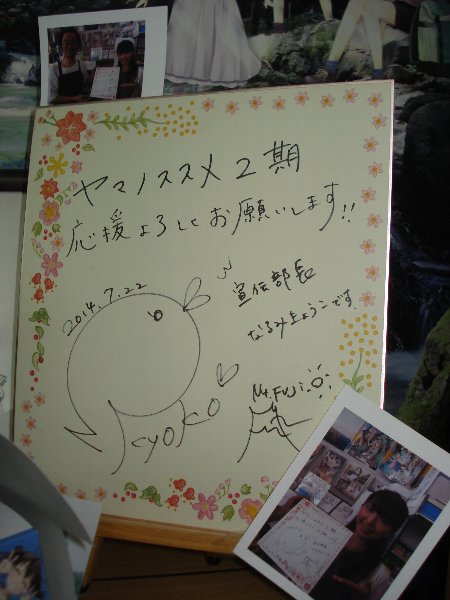 ヤマノススメ2期
応援よろしくお願いします!!
2014.7.22
宣伝部長
なるみきょうこです。
kyoko
Mt.FUJI